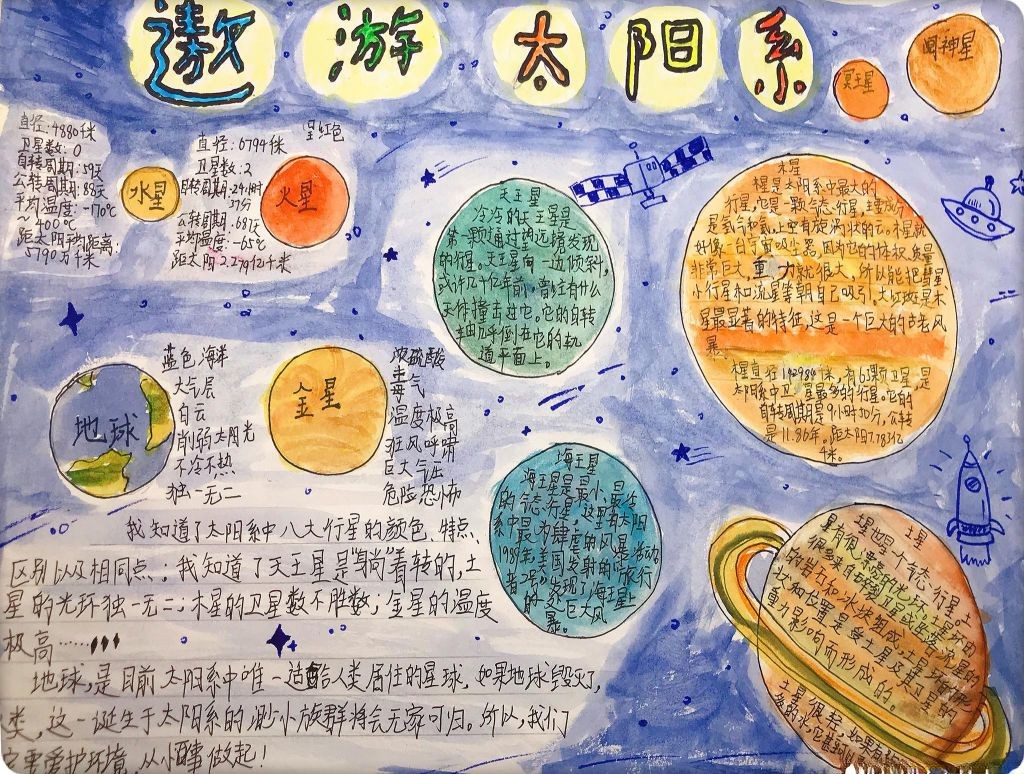 遨游太阳系
冥王星
阋神星
直径:4880千米
卫星数:0
自转周期:59天
公转周期:88天
平均温度:-170℃
~400℃
距太阳平均距离:
5790万千米
水星
呈红色
直径:6794千米
卫星数:2
自转周期:24小时
37分
公转周期:687天
平均温度:-65℃
距太阳2.279亿千米
火星
天王星
冷冷的天王星是
第一颗通过望远镜发现
的行星。天王星向一边倾斜,
或许几十亿年前,曾经有什么
天体撞击过它,它的自转
轴几乎倒在它的轨
道平面上。
木星
木星是太阳系中最大的
行星,它是一颗气态行星,主要成分
是氢气和氦,上空有旋涡状的云。木星就
好像一台宇宙吸尘器,因为它的体积、质量
非常巨大,重力就很大,所以能把彗星
小行星和流星等朝自己吸引,大红斑是木
星最显著的特征,这是一个巨大的古老风
暴。
木星直径142984千米,有63颗卫星,是
太阳系中卫星最多的行星。它的
自转周期是9小时50分,公转
是11.86年。距太阳7.783亿
千米。
地球
蓝色海洋
大气层
白云
削弱太阳光
不冷不热
独一无二
金星
浓硫酸
毒气
温度极高
狂风呼啸
巨大气压
危险恐怖
海王星
海王星是最小、最冷
的气态行星,这里有太阳
系中最为肆虐的风暴活动
1989年,美国发射的“旅行
者2号”发现了海王星
的一处巨大风
暴。
土星
土星也是个气态行星,
有很多漂亮的光环,土星环的
我知道了太阳系中八大行星的颜色、特点、
区别以及相同点;我知道了天王星是“躺”着转的,土
星的光环独一无二;木星的卫星数不胜数;金星的温度
极高……
地球,是目前太阳系中唯一适合人类居住的星球,如果地球毁灭了,
类,这一诞生于太阳系的渺小族群将会无家可归。所以,我们
要爱护环境,从小事做起!